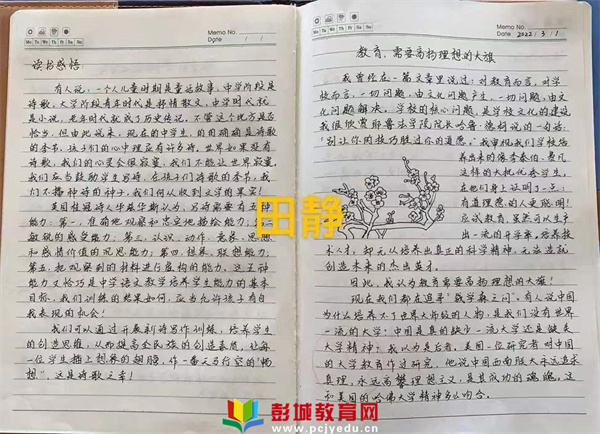 Memo No.
Mo Tu We Th Fr Sa Su
Date / /
读书感悟
有人说,一个人儿童时期是童话故事,中学阶段是
诗歌,大学阶段青年时代是抒情散文,中学时代就
是小说,老年时代就成了历史传记。不管这个观点是否
恰当,但由此说来,现在的中学生,的的确确是诗歌
的季节,孩子们的心中理应有许多诗,世界如果没有
诗歌,我们的心灵会很寂寞,我们不能让世界寂寞,
我们应当鼓励学生写诗。在孩子们诗歌的季节,我
们不播种诗的种子,我们何以收到文学的果实!
英国桂冠诗人华兹华斯认为,写诗需要有五种
能力:第一,准确地观察和忠实地描绘能力;第二,
敏锐的感受能力;第三,认识、动作、意象、思想
和感情价值的沉思能力;第四,想象、联想能力;
第五,把观察到的材料进行虚构的能力。这五种
能力又恰巧是中学语文教学培养学生能力的基本
目标,我们训练的结果如何,应当允许孩子有自
我表现的机会!
我们可以通过开展新诗写作训练,培养学生
的创造思维,从而提高全民族的创造素质,让每
一位学生插上想象的翅膀,作一番天马行空的“畅
想”,这是诗歌之幸!
Memo No.
Mo Tu We Th Fr Sa Su
Date 2022 / 3 / 1
教育,需要高扬理想的大旗
我曾经在一篇文章里说过:对教育而言,对学
校而言,一切问题,由文化问题产生,一切问题,由文
化问题解决。学校的核心问题,是学校文化的建设
我很欣赏耶鲁法学院院长哈鲁·德柯说的一句话:
“别让你的技巧胜过你的道德。”我审视我们学校培
养出来的佛李泰伯·夏凡
这样的大批优秀学生,
在他们身上证明了一点:
有道理德的人更聪明!
应试教育,虽然可以生产
出一流的升学率,培养技
术人才,却无从培养出真正的科学精神,无法造就
创造未来的杰出英才。
因此,我认为教育需要高扬理想的大旗!
现在我们都在追寻“钱学森之问”。有人说中国
为什么培养不了世界大师级的人物,是我们没有世界
一流的大学;中国是真的缺少一流大学还是缺失
大学精神?我以为是后者,美国一位研究者对中国
的大学教育作过研究,他说中国西南联大永远追求
真理,永远高攀理想主义,是其成功的魂魄,这
和美国的哈佛大学精神多么吻合。
田静
彭城教育网
www.pcjyedu.cn